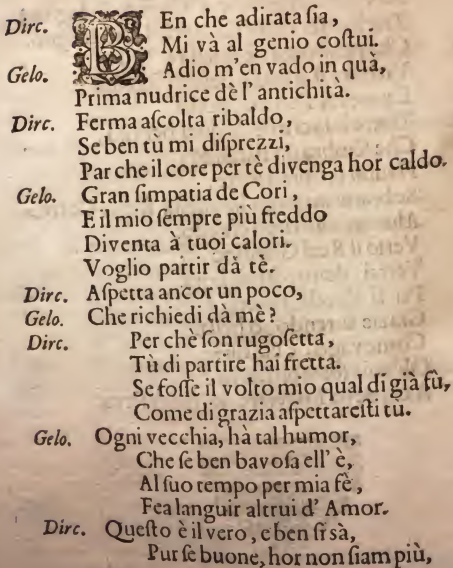 Dirc. BEn che adirata ſia,
Mi và al genio coſtui.
Gelo. Adio m'en vado in quà,
Prima nudrice dè l' antichità.
Dirc. Ferma aſcolta ribaldo,
Se ben tù mi diſprezzi,
Par che il core per tè divenga hor caldo.
Gelo. Gran ſimpatia de Cori,
E il mio ſempre più freddo
Diventa à tuoi calori.
Voglio partir dà tè.
Dirc. Aſpetta ancor un poco,
Gelo. Che richiedi dà mè?
Dirc. Per chè ſon rugoſetta,
Tù di partire hai fretta.
Se foſſe il volto mio qual di già fù,
Come di grazia aſpettareſti tù.
Gelo. Ogni vecchia, hà tal humor,
Che ſe ben bavoſa ell' è,
Al ſuo tempo per mia fè,
Fea languir altrui d' Amor.
Dirc. Queſto è il vero, e ben ſi sà,
Pur ſe buone, hor non ſiam più,